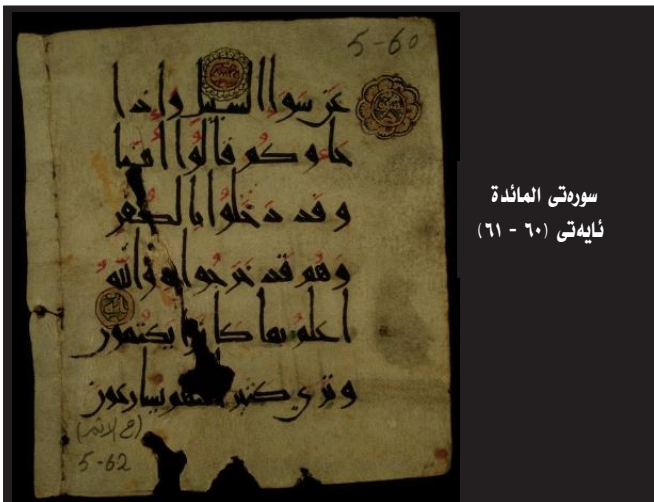 5-60
عَن سَوَاا السَّبِيلِ وَإِذَا
جَاوكُم قَالُوا أَمَنَّا
وَقَد دَخَلُوا بِالكُفرِ
وَهُم قَد خَرَجُوا بِهِ وَاللهُ
أَعلَمُ بِمَا كَانُوا يَكتُمُون
وَتَرَى كَثِيرا يُسَارِعُون
(في الاثم)
5-62
سورەتی المائدة
ئایەتی (٦٠ - ٦١)